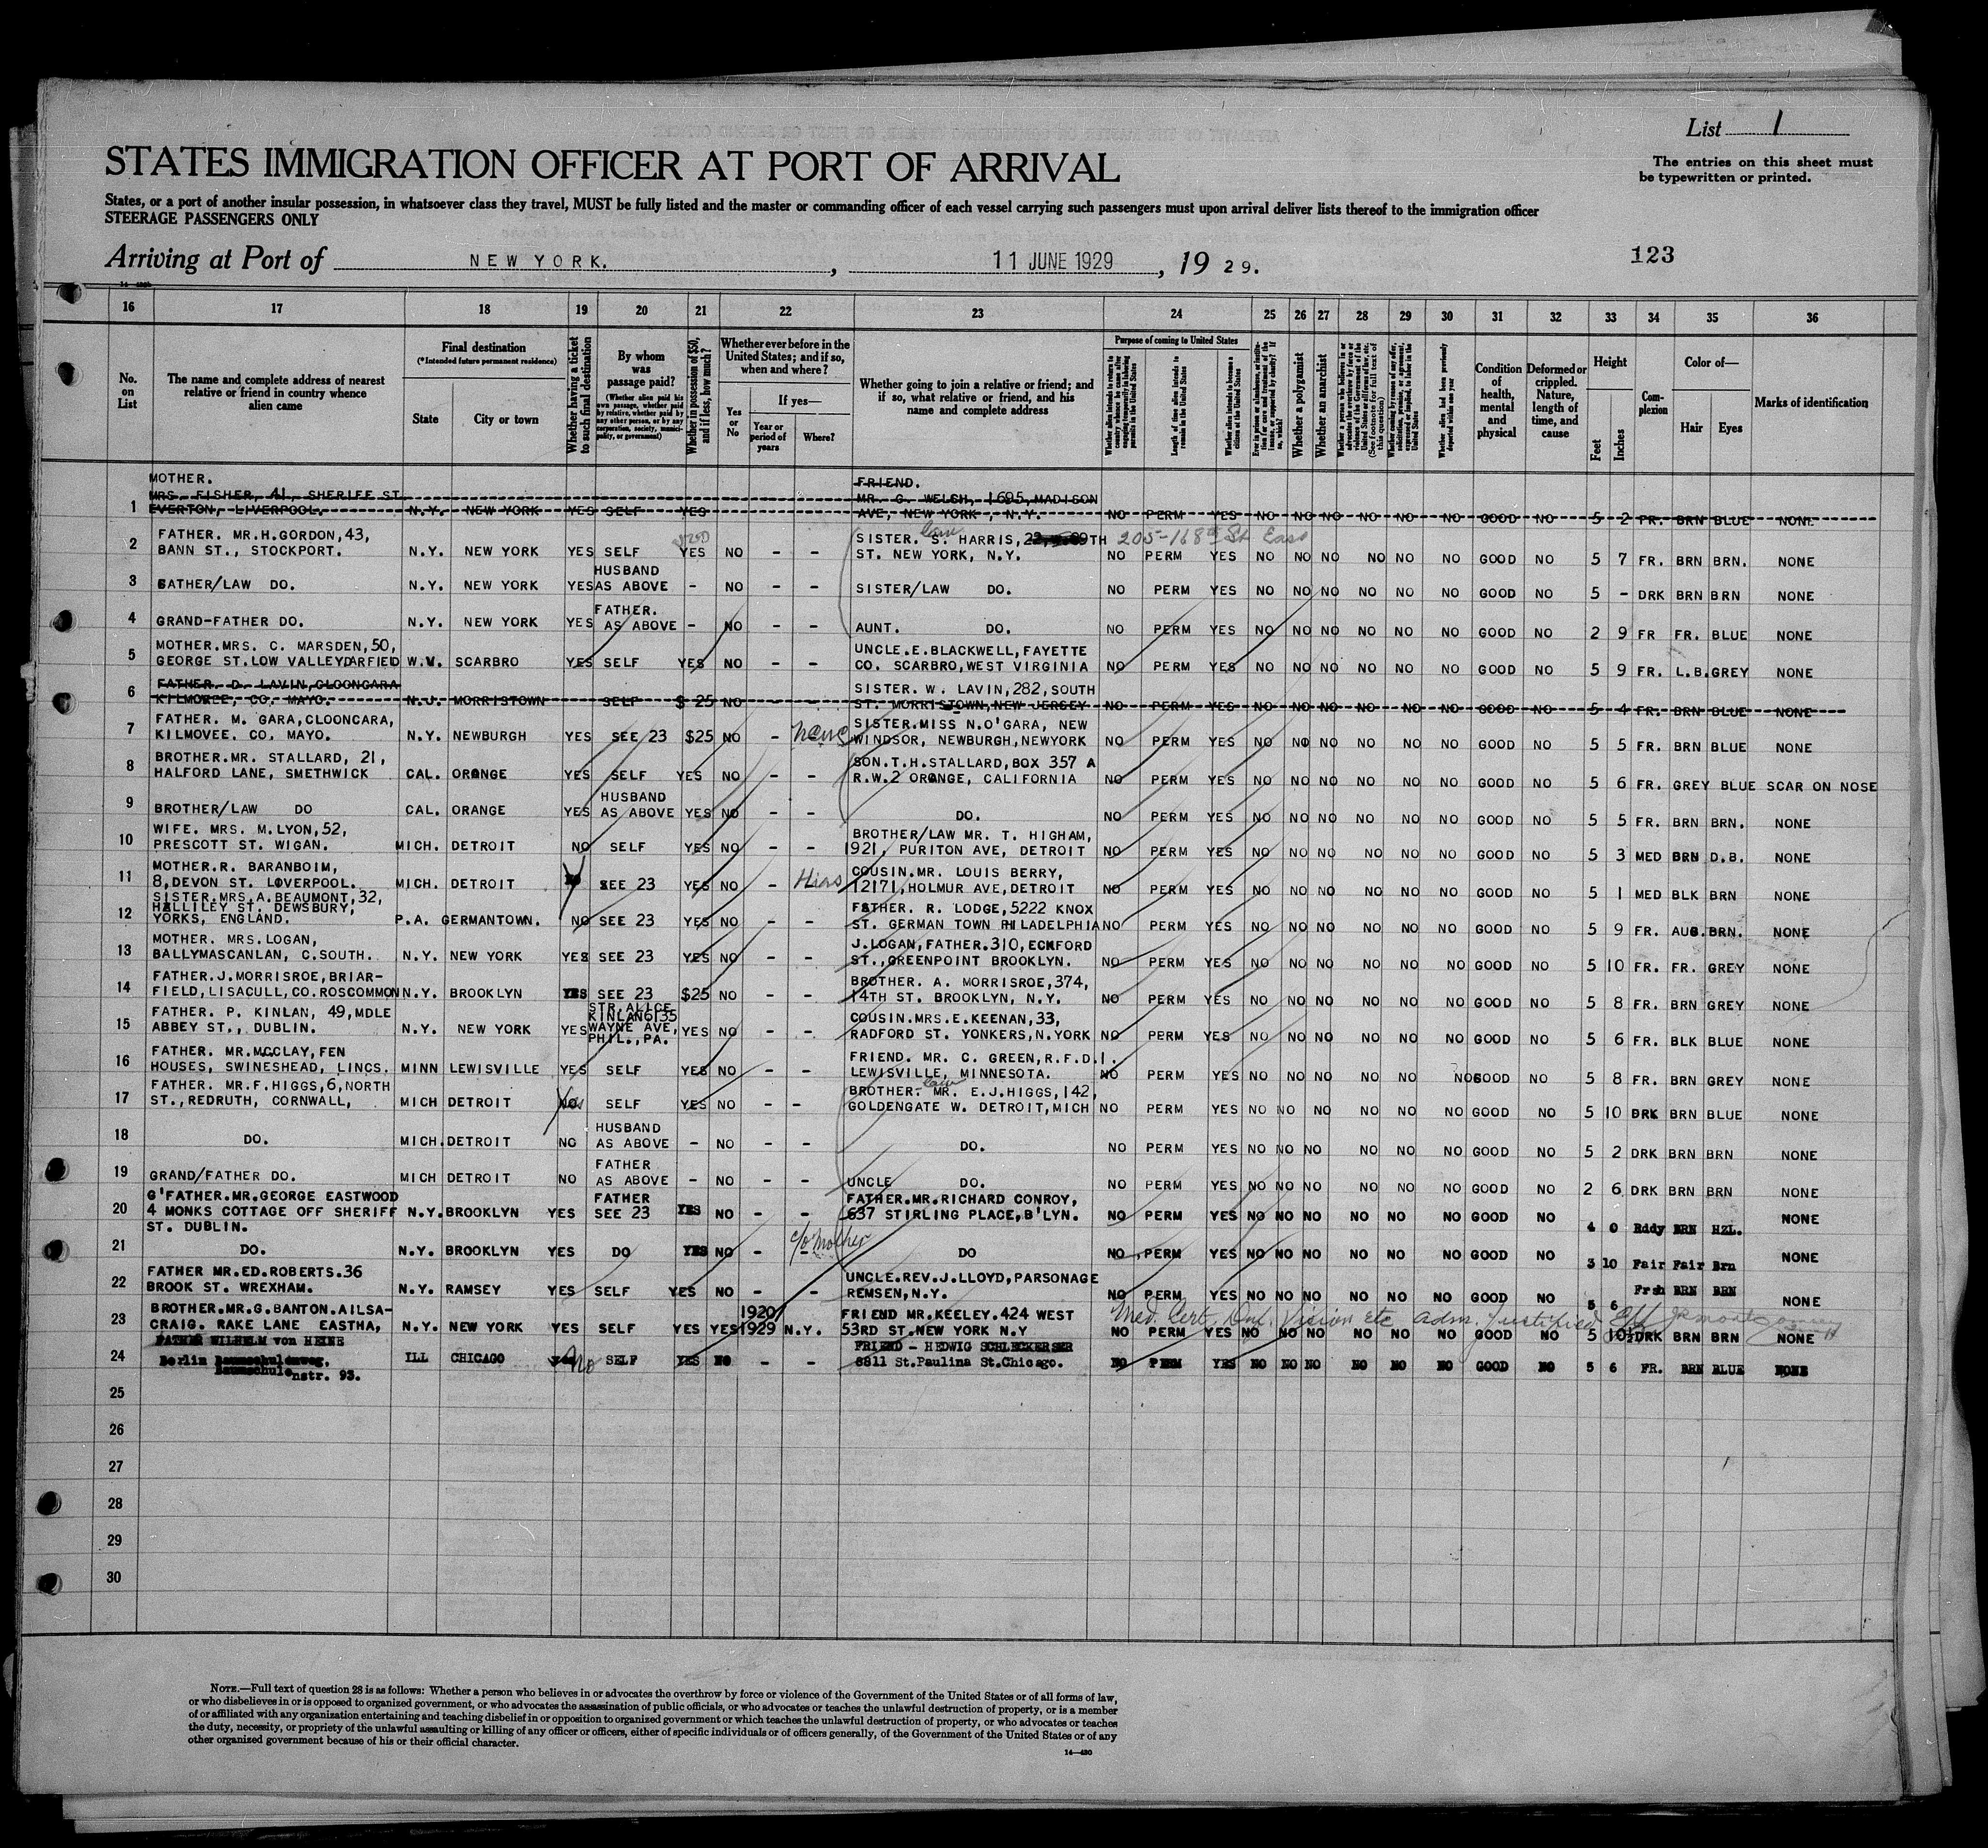 List 1
STATES IMMIGRATION OFFICER AT PORT OF ARRIVAL
The entries on this sheet must
be typewritten or printed.
States, or a port of another insular possession, in whatsoever class they travel, MUST be fully listed and the master or commanding officer of each vessel carrying such passengers must upon arrival deliver lists thereof to the immigration officer
STEERAGE PASSENGERS ONLY
Arriving at Port of NEW YORK. , 11 JUNE 1929 , 19 29.
123
16 17 18 19 20 21 22 23 24 25 26 27 28 29 30 31 32 33 34 35 36
No. on List
The name and complete address of nearest relative or friend in country whence alien came
Final destination
(*Intended future permanent residence)
State
City or town
Whether having a ticket to such final destination
By whom was passage paid?
(Whether alien paid his own passage, whether paid by relative, whether paid by any other person, or by any corporation, society, municipality, or government)
Whether in possession of $50, and if less, how much?
Whether ever before in the United States; and if so, when and where?
Yes or No
If yes—
Year or period of years
Where?
Whether going to join a relative or friend; and if so, what relative or friend, and his name and complete address
Purpose of coming to United States
Length of time alien intends to remain in the United States
Whether alien intends to become a citizen of the United States
Whether a polygamist
Whether an anarchist
Condition of health, mental and physical
Deformed or crippled. Nature, length of time, and cause
Height
Feet
Inches
Complexion
Color of—
Hair
Eyes
Marks of identification
1 MOTHER. MRS. FISHER, 41, SHERIFF ST EVERTON, LIVERPOOL. N.Y. NEW YORK YES SELF YES FRIEND. MR. G. WELSH, 1695, MADISON AVE, NEW YORK, N.Y. NO PERM YES NO NO NO NO NO NO GOOD NO 5 2 FR. BRN BLUE NONE
2 FATHER. MR.H.GORDON,43, BANN ST., STOCKPORT. N.Y. NEW YORK YES SELF YES NO - - SISTER. law S. HARRIS, ST. NEW YORK, N.Y. 205-168th St East NO PERM YES NO NO NO NO NO NO GOOD NO 5 7 FR. BRN BRN. NONE
3 FATHER/LAW DO. N.Y. NEW YORK YES HUSBAND AS ABOVE - NO - - SISTER/LAW DO. NO PERM YES NO NO NO NO NO NO GOOD NO 5 - DRK BRN BRN NONE
4 GRAND-FATHER DO. N.Y. NEW YORK YES FATHER. AS ABOVE - NO - - AUNT. DO. NO PERM YES NO NO NO NO NO NO GOOD NO 2 9 FR FR. BLUE NONE
5 MOTHER.MRS. C. MARSDEN,50, GEORGE ST.LOW VALLEYDARFIED W.V. SCARBRO YES SELF YES NO - - UNCLE.E.BLACKWELL,FAYETTE CO. SCARBRO,WEST VIRGINIA NO PERM YES NO NO NO NO NO NO GOOD NO 5 9 FR. L.B. GREY NONE
6 FATHER. D. LAVIN,CLOONGARA KILMOREE, CO. MAYO. N.J. MORRISTOWN SELF $ 25 NO SISTER. W. LAVIN,282,SOUTH ST. MORRISTOWN,NEW JERSEY NO PERM YES NO NO NO NO NO NO GOOD NO 5 4 FR. BRN BLUE NONE
7 FATHER. M. GARA,CLOONCARA, KILMOVEE. CO. MAYO. N.Y. NEWBURGH YES SEE 23 $25 NO - SISTER.MISS N.O'GARA, NEW WINDSOR, NEWBURGH,NEWYORK NO PERM YES NO NO NO NO NO NO GOOD NO 5 5 FR. BRN BLUE NONE
8 BROTHER.MR. STALLARD, 21, HALFORD LANE, SMETHWICK CAL. ORANGE YES SELF YES NO - - SON.T.H.STALLARD,BOX 357 A R.W.2 ORANGE, CALIFORNIA NO PERM YES NO NO NO NO NO NO GOOD NO 5 6 FR. GREY BLUE SCAR ON NOSE
9 BROTHER/LAW DO CAL. ORANGE YES HUSBAND AS ABOVE YES NO - - DO. NO PERM YES NO NO NO NO NO NO GOOD NO 5 5 FR. BRN BRN. NONE
10 WIFE. MRS. M.LYON,52, PRESCOTT ST. WIGAN. MICH. DETROIT NO SELF YES NO - - BROTHER/LAW MR. T. HIGHAM, 1921, PURITON AVE, DETROIT NO PERM YES NO NO NO NO NO NO GOOD NO 5 3 MED BRN D.B. NONE
11 MOTHER.R. BARANBOIM, 8,DEVON ST. LOVERPOOL. MICH. DETROIT SEE 23 YES NO - Hias COUSIN.MR. LOUIS BERRY, 12171,HOLMUR AVE,DETROIT NO PERM YES NO NO NO NO NO NO GOOD NO 5 1 MED BLK BRN NONE
12 SISTER.MRS.A.BEAUMONT,32, HALLILEY ST. DEWSBURY, YORKS, ENGLAND. P.A. GERMANTOWN. NO SEE 23 YES NO - - FATHER. R. LODGE,5222 KNOX ST. GERMAN TOWN PHILADELPHIA NO PERM YES NO NO NO NO NO NO GOOD NO 5 9 FR. AUB. BRN. NONE
13 MOTHER. MRS.LOGAN, BALLYMASCANLAN, C.SOUTH. N.Y. NEW YORK YES SEE 23 YES NO - - J.LOGAN,FATHER.310,ECKFORD ST.,GREENPOINT BROOKLYN. NO PERM YES NO NO NO NO NO NO GOOD NO 5 10 FR. FR. GREY NONE
14 FATHER.J.MORRISROE,BRIAR- FIELD,LISACULL,CO.ROSCOMMON N.Y. BROOKLYN YES SEE 23 $25 NO - - BROTHER. A. MORRISROE,374, 14TH ST. BROOKLYN, N.Y. NO PERM YES NO NO NO NO NO NO GOOD NO 5 8 FR. BRN GREY NONE
15 FATHER. P. KINLAN, 49,MDLE ABBEY ST., DUBLIN. N.Y. NEW YORK YES STR.ALICE KINLAN6135 WAYNE AVE, PHIL.,PA. YES NO - - COUSIN.MRS.E.KEENAN,33, RADFORD ST. YONKERS,N.YORK NO PERM YES NO NO NO NO NO NO GOOD NO 5 6 FR. BLK BLUE NONE
16 FATHER. MR.MCCLAY,FEN HOUSES, SWINESHEAD, LINCS. MINN LEWISVILLE YES SELF YES NO - - FRIEND. MR. C. GREEN,R.F.D.1. LEWISVILLE, MINNESOTA. NO PERM YES NO NO NO NO NO NO GOOD NO 5 8 FR. BRN GREY NONE
17 FATHER. MR.F.HIGGS,6,NORTH ST.,REDRUTH, CORNWALL, MICH DETROIT SELF YES NO - - BROTHER. law MR. E.J.HIGGS,142, GOLDENGATE W. DETROIT,MICH NO PERM YES NO NO NO NO NO NO GOOD NO 5 10 DRK BRN BLUE NONE
18 DO. MICH. DETROIT NO HUSBAND AS ABOVE - NO - - DO. NO PERM YES NO NO NO NO NO NO GOOD NO 5 2 DRK BRN BRN NONE
19 GRAND/FATHER DO. MICH DETROIT NO FATHER AS ABOVE - NO - - UNCLE DO. NO PERM YES NO NO NO NO NO NO GOOD NO 2 6 DRK BRN BRN NONE
20 G'FATHER.MR.GEORGE EASTWOOD 4 MONKS COTTAGE OFF SHERIFF ST. DUBLIN. N.Y. BROOKLYN YES FATHER SEE 23 YES NO - - FATHER.MR.RICHARD CONROY, 637 STIRLING PLACE,B'LYN. NO PERM YES NO NO NO NO NO NO GOOD NO 4 0 Rddy BRN HZL. NONE
21 DO. N.Y. BROOKLYN YES DO YES NO - - c/o Mother DO NO PERM YES NO NO NO NO NO NO GOOD NO 3 10 Fair Fair Brn NONE
22 FATHER MR.ED.ROBERTS.36 BROOK ST. WREXHAM. N.Y. RAMSEY YES SELF YES NO - - UNCLE.REV.J.LLOYD,PARSONAGE REMSEN,N.Y. NO PERM YES NO NO NO NO NO NO GOOD NO 5 6 Frsh BRN BRN NONE
23 BROTHER.MR.G.BANTON.AILSA- CRAIG. RAKE LANE EASTHA, N.Y. NEW YORK YES SELF YES YES 1920/ 1929 N.Y. FRIEND MR.KEELEY.424 WEST 53RD ST.NEW YORK N.Y Med. Cert. Vision etc adm. Justified NO PERM YES NO NO NO NO NO NO GOOD NO 5 10½ DRK BRN BRN NONE
24 FATHER WILHELM von HEINE Berlin nstr. 93. ILL CHICAGO No SELF YES NO - - FRIEND - HEDWIG SCHLECKERSER 8811 St.Paulina St.Chicago. NO PERM YES NO NO NO NO NO NO GOOD NO 5 6 FR. BRN BLUE NONE
25
26
27
28
29
30
NOTE.—Full text of question 28 is as follows: Whether a person who believes in or advocates the overthrow by force or violence of the Government of the United States or of all forms of law,
or who disbelieves in or is opposed to organized government, or who advocates the assassination of public officials, or who advocates or teaches the unlawful destruction of property, or is a member
of or affiliated with any organization entertaining and teaching disbelief in or opposition to organized government or which teaches the unlawful destruction of property, or who advocates or teaches
the duty, necessity, or propriety of the unlawful assaulting or killing of any officer or officers, either of specific individuals or of officers generally, of the Government of the United States or of any
other organized government because of his or their official character.
14—430